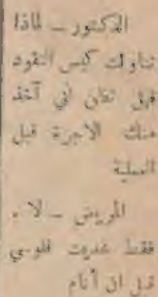 الدكتور ــ لماذا
تناولت كيس النقود
فهل تظن اني آخذ
منك الاجرة قبل
العملية
المريض ــ لا .
فقط عديت فلوسي
قبل ان أنام